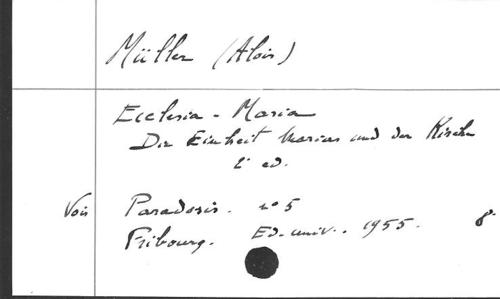 Müller (Alois)
Ecclesia - Maria
Die Einheit Marias und der Kirche
2' ed.
Voir Paradosis. n° 5
Fribourg. Ed. univ.. 1955. 8°